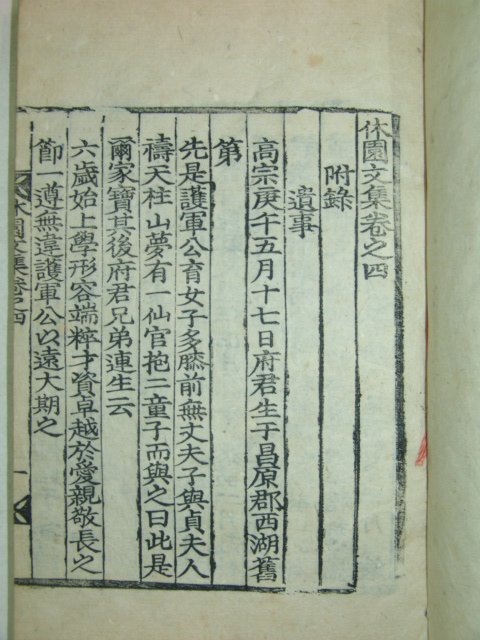 休園文集卷之四
附錄
遺事
高宗庚午五月十七日府君生于昌原郡西湖舊
第
先是護軍公育女子多膝前無丈夫子與貞夫人
禱天柱山夢有一仙官抱二童子而與之曰此是
爾家寶其後府君兄弟連生云
六歲始上學形容端粹才資卓越於愛親敬長之
節一遵無違護軍公以遠大期之
休園文集卷之四
一